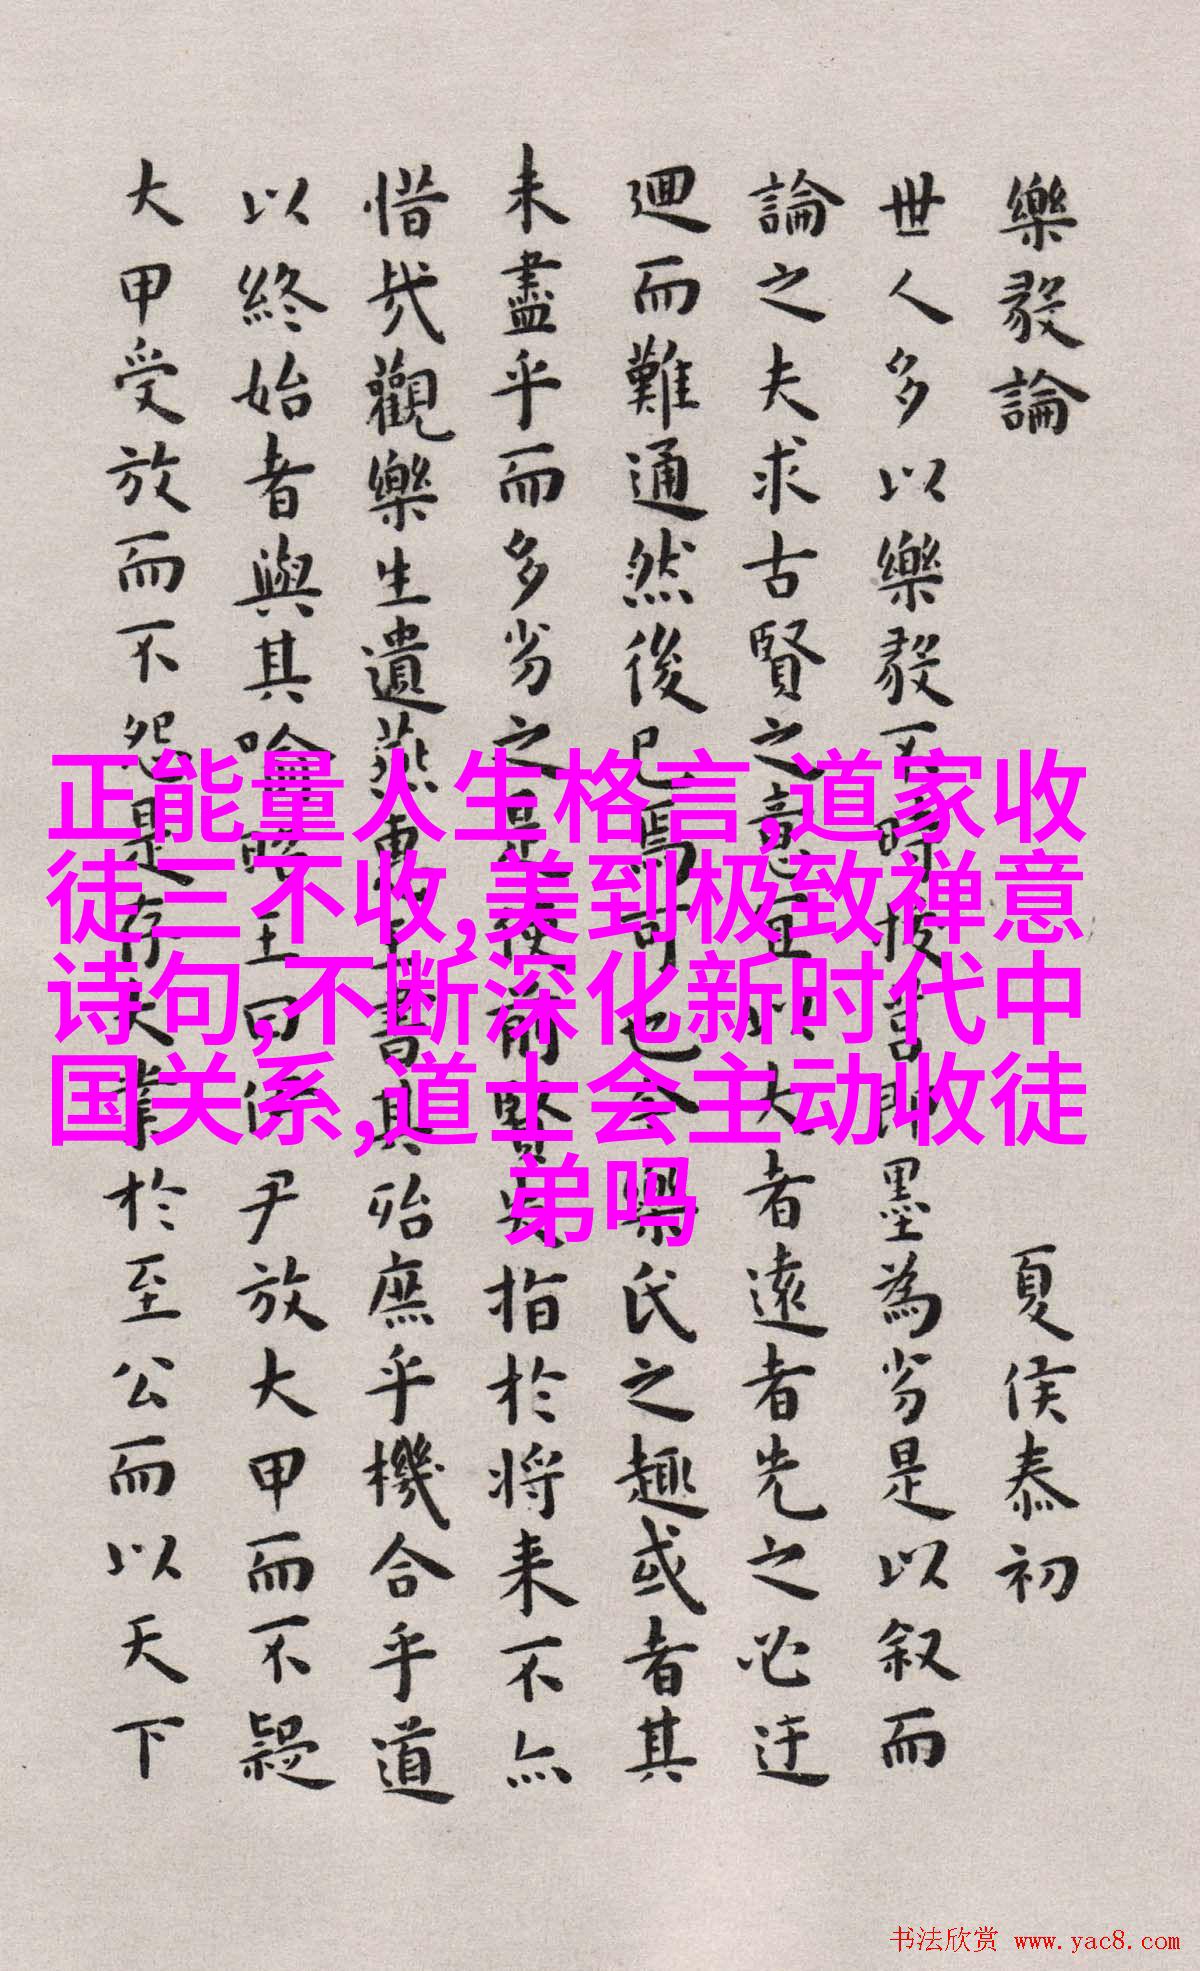 樂毅論
夏侯泰初
世人多以樂毅不時拔莒即墨為劣是以叙而
論之夫求古賢之意宜以大者遠者先之必迂
迴而難通然後已焉可也今樂氏之趣或者其
未盡乎而多劣之是使前賢失指於將来不
惜哉觀樂生遺燕惠王書其殆庶乎機合乎道
以終始者與其喻昭王曰伊尹放大甲而不疑
大甲受放而不怨是存大業於至公而以天下
正能量人生格言,道家收
徒三不收,美到极致禅意
诗句,不断深化新时代中
国关系,道士会主动收徒
弟吗
书法欣赏 www.yac8.com